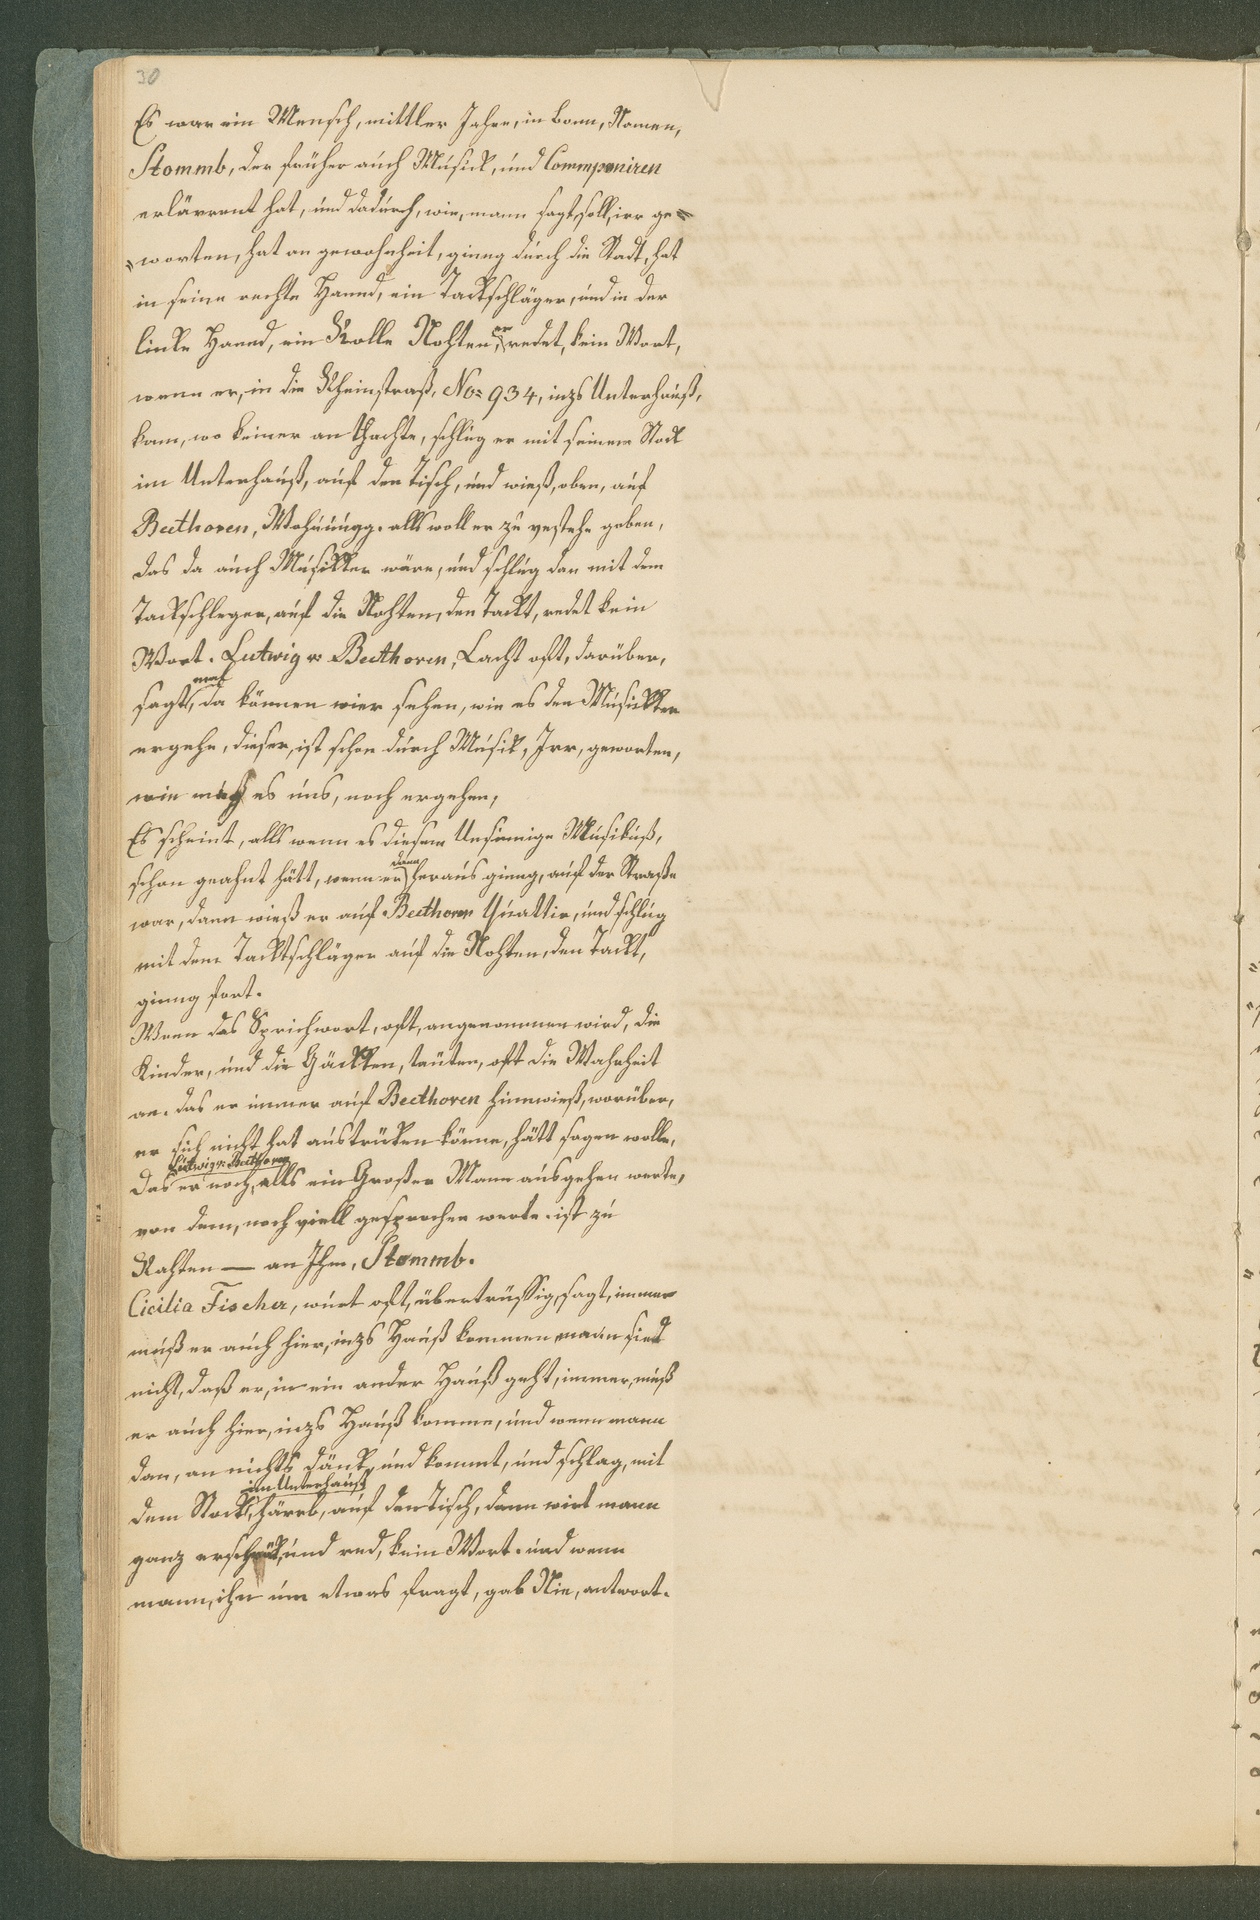 30
Es war ein Mensch, mittler Jahre, in bonn, Namen,
Stommb, der früher auch Musick, und Commponiren
erlärrent hat, und dadurch, wie, mann sagt, soll, irr ge=
=worten, hat an gewohnheit, gieng durch die Stadt, hat
in seine rechte Hannd, ein Tacktschläger, und in der
linke Hannd, ein Rolle Nohten, er redet, kein Wort,
wenn er, in die Rheinstraß, No= 934, inzs Unterhauß,
kam, wo keiner an thachte, schlug er mit seinem Stock
im Unterhauß, auf den Tisch, und wieß, oben, auf
Beethoven, Wohnungg. alls woll er zu verstehe geben,
das da auch Musikker wäre, und schlug dan mit dem
Tacktschleger, auf die Nohten, den Tackt, redet kein
Wort. Lutwig v: Beethoven, Lacht oft, darüber,
sagt, mal, da können wier sehen, wie es den Musickker
ergehe, dieser, ist schon durch Musik, Irr, geworten,
wie mag es uns, noch ergehen,
Es scheint, alls wenn es diesem Unsinnige Musikuß,
schon geahnt hätt, wenn er dann heraus gieng, auf der Straße
war, dann wieß er auf Beethoven Quattir, und schlug
mit dem Tacktschläger auf die Nohten, den Tackt,
gieng fort.
Wenn das Sprichwort, oft, angenommen wird, die
Kinder, und die Gäckken, teuten, oft die Wahrheit
an. das er immer auf Beethoven hinnwieß, worüber,
er sich nicht hat austrüken könne, hätt sagen wolle,
Lutwig v: Beethoven
Das er noch, alls ein Großer Mann ausgehen werte,
von dem, noch viell gesprochen werte. ist zu
Rahten — an Ihm, Stommb.
Cicilia Fischer, wurt oft, übertrüssig, sagt, immer
muß er auch hier, inzs Hauß kommen, mann sied
nicht, daß er, in ein ander Hauß geht, immer, muß
er auch hier, inzs Hauß komme, und wenn mann
dan, an nichts dänk, und kommt, und schlag, mit
im Unterhauß
dem Stock, härrb, auf den Tisch, dann wirt mann
ganz erschräkt, und red, kein Wort. und wenn
mann, ihn um etwas fragt, gab Nie, antwort.